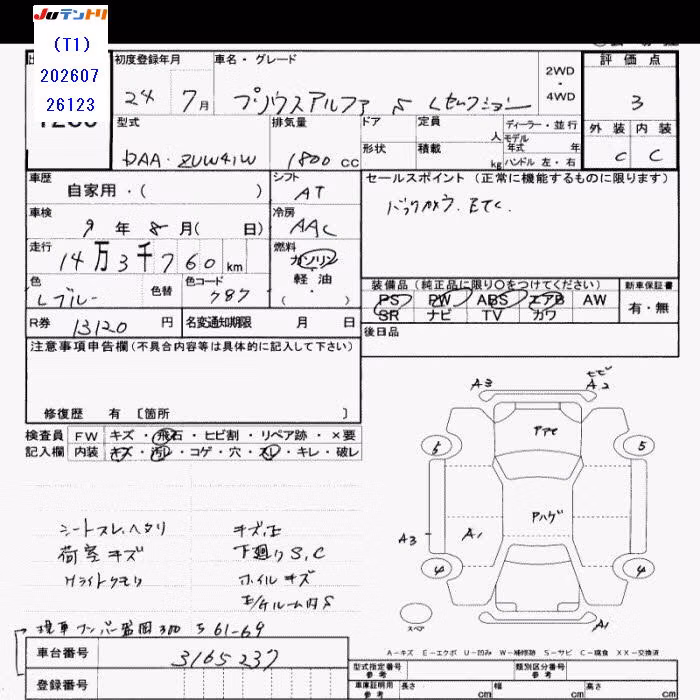 Juテントリ
(T1)
202607
26123
初度登録年月
車名・グレード
24 7月
プリウスアルファ S Lセレクション
2WD
4WD
評価点
3
外装 内装
C C
型式
DAA・ZVW41W
排気量
1800 cc
ドア
形状
定員
人
積載
kg
ディーラー・並行
モデル
年式 年
ハンドル 左・右
車歴
自家用・( )
シフト
AT
セールスポイント (正常に機能するものに限ります)
バックカメラ. ETC.
車検
9年 8月( 日)
冷房
AAC
走行
14万3千760km
燃料
ガソリン
軽油
色
Lブルー
色替
色コード
787
装備品 (純正品に限り○をつけてください)
PS PW ABS エアB AW
SR ナビ TV カワ
新車保証書
有・無
R券
13120円
名変通知期限
月 日
後日品
注意事項申告欄 (不具合内容等は具体的に記入して下さい)
修復歴 有 [箇所 ]
検査員
記入欄
FW キズ・飛石・ヒビ割・リペア跡・×要
内装 キズ・汚レ・コゲ・穴・スレ・キレ・破レ
シートスレ、ヘタリ
荷室キズ
Hライトクモリ
下廻りS,C
ホイルキズ
E/GルームS
A3 ヒビ A2
5 5
アハゲ
A3 A1
4 4
スペア
A1
A-キズ E-エクボ U-凹み W-補修跡 S-サビ C-腐食 XX-交換済
現車ナンバー盛岡300 ち 61-69
車台番号
3165237
登録番号
型式指定番号
参考
類別区分番号
参考
車庫証明用
参考
長さ cm
幅 cm
高さ cm